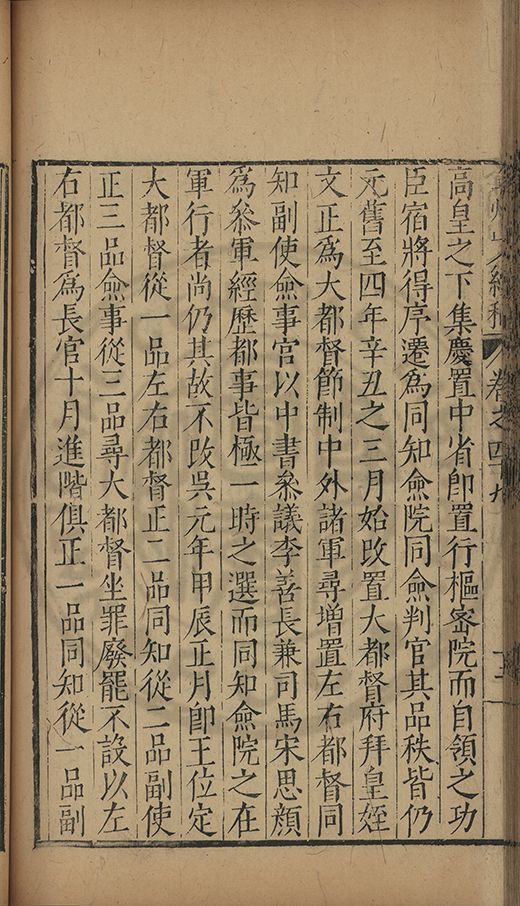 高皇之下集慶置中省卽置行樞宻院而自領之功
臣宿將得序遷爲同知僉院同僉判官其品秩皆仍
元舊至四年辛丑之三月始改置大都督府拜皇姪
文正爲大都督節制中外諸軍尋增置左右都督同
知副使僉事官以中書叅議李善長兼司馬宋思顏
爲叅軍經歷都事皆極一時之選而同知僉院之在
軍行者尚仍其故不改吳元年甲辰正月卽王位定
大都督從一品左右都督正二品同知從二品副使
正三品僉事從三品尋大都督坐罪廢罷不設以左
右都督爲長官十月進階俱正一品同知從一品副